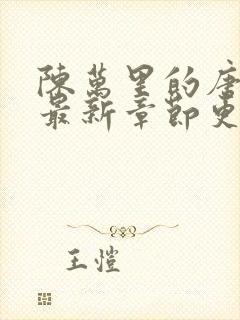 陳萬里的唐
最新章節更
王愷